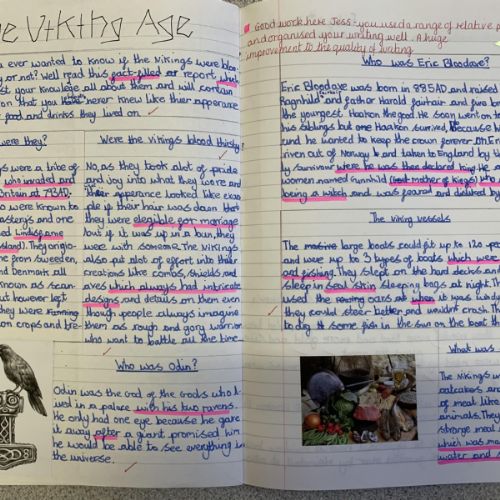 The Viking Age
ever wanted to know if the Vikings were bloo
y or not? Well read this fact-filled report, what
st your knowlege all about them and will contain
tion that you have never knew like thier apperance
food and drinks they lived on.
were they?
ngs were a tribe of
who invaded and
Britain at 793AD.
so were known to
asterys and one
led Lindisfarne
sland). They origio-
me from Sweden,
and Denmark all
nown as scan-
but however left
they were running
on crops and bre-
Were the vikings blood thirsty?
No, as they took alot of pride
and joy into what they wore and
thier apperance looked like exam
ple if their hair was down that
they were elegible for marriage
but if it was up in a bun, they
were with someone. The vikings
also put alot of effort into their
creations like combs, shields and
axes which always had intricate
designs and details on them even
though people always imagine
them as rough and gory warrior
who want to battle all the time.
Who was Odin?
Odin was the God of the Gods who l
ved in a palace with his two ravens.
He only had one eye because he gave
it away after a giant promised him
he would be able to see everything in
the universe.
Good work here Jess - you used a range of relative p
and organised your writing well. A huge
improvement to the quality of writing
Who was Eric Bloodaxe?
Eric Bloodaxe was born in 895AD and raised
Ragnhild and father Harold fairhair and five bro
the youngest Haakon the good. He soon went on to
his siblings but one Haakon survived, because
and he wanted to keep the crown forever. On Eri
riven out of Norway & and taken to England by Vi
ly survivour where he was then declared king. He
women named Gunnhild (God mother of Kings) who
being a witch and was feared and desired by
The Viking Vessels
The large boats could fit up to 120 peo
and were up to 3 types of boats which were
and fishing. They slept on the hard decks and
sleep in seal skin sleeping bags at night. Th
used the oars at when it was windy
they could steer better and wouldn't crash. Th
to dry it some fish in the sun on the boat
What was
The Vikings w
oatcakes and
of meat like
animals. They
strange meal
which was ma
water and s